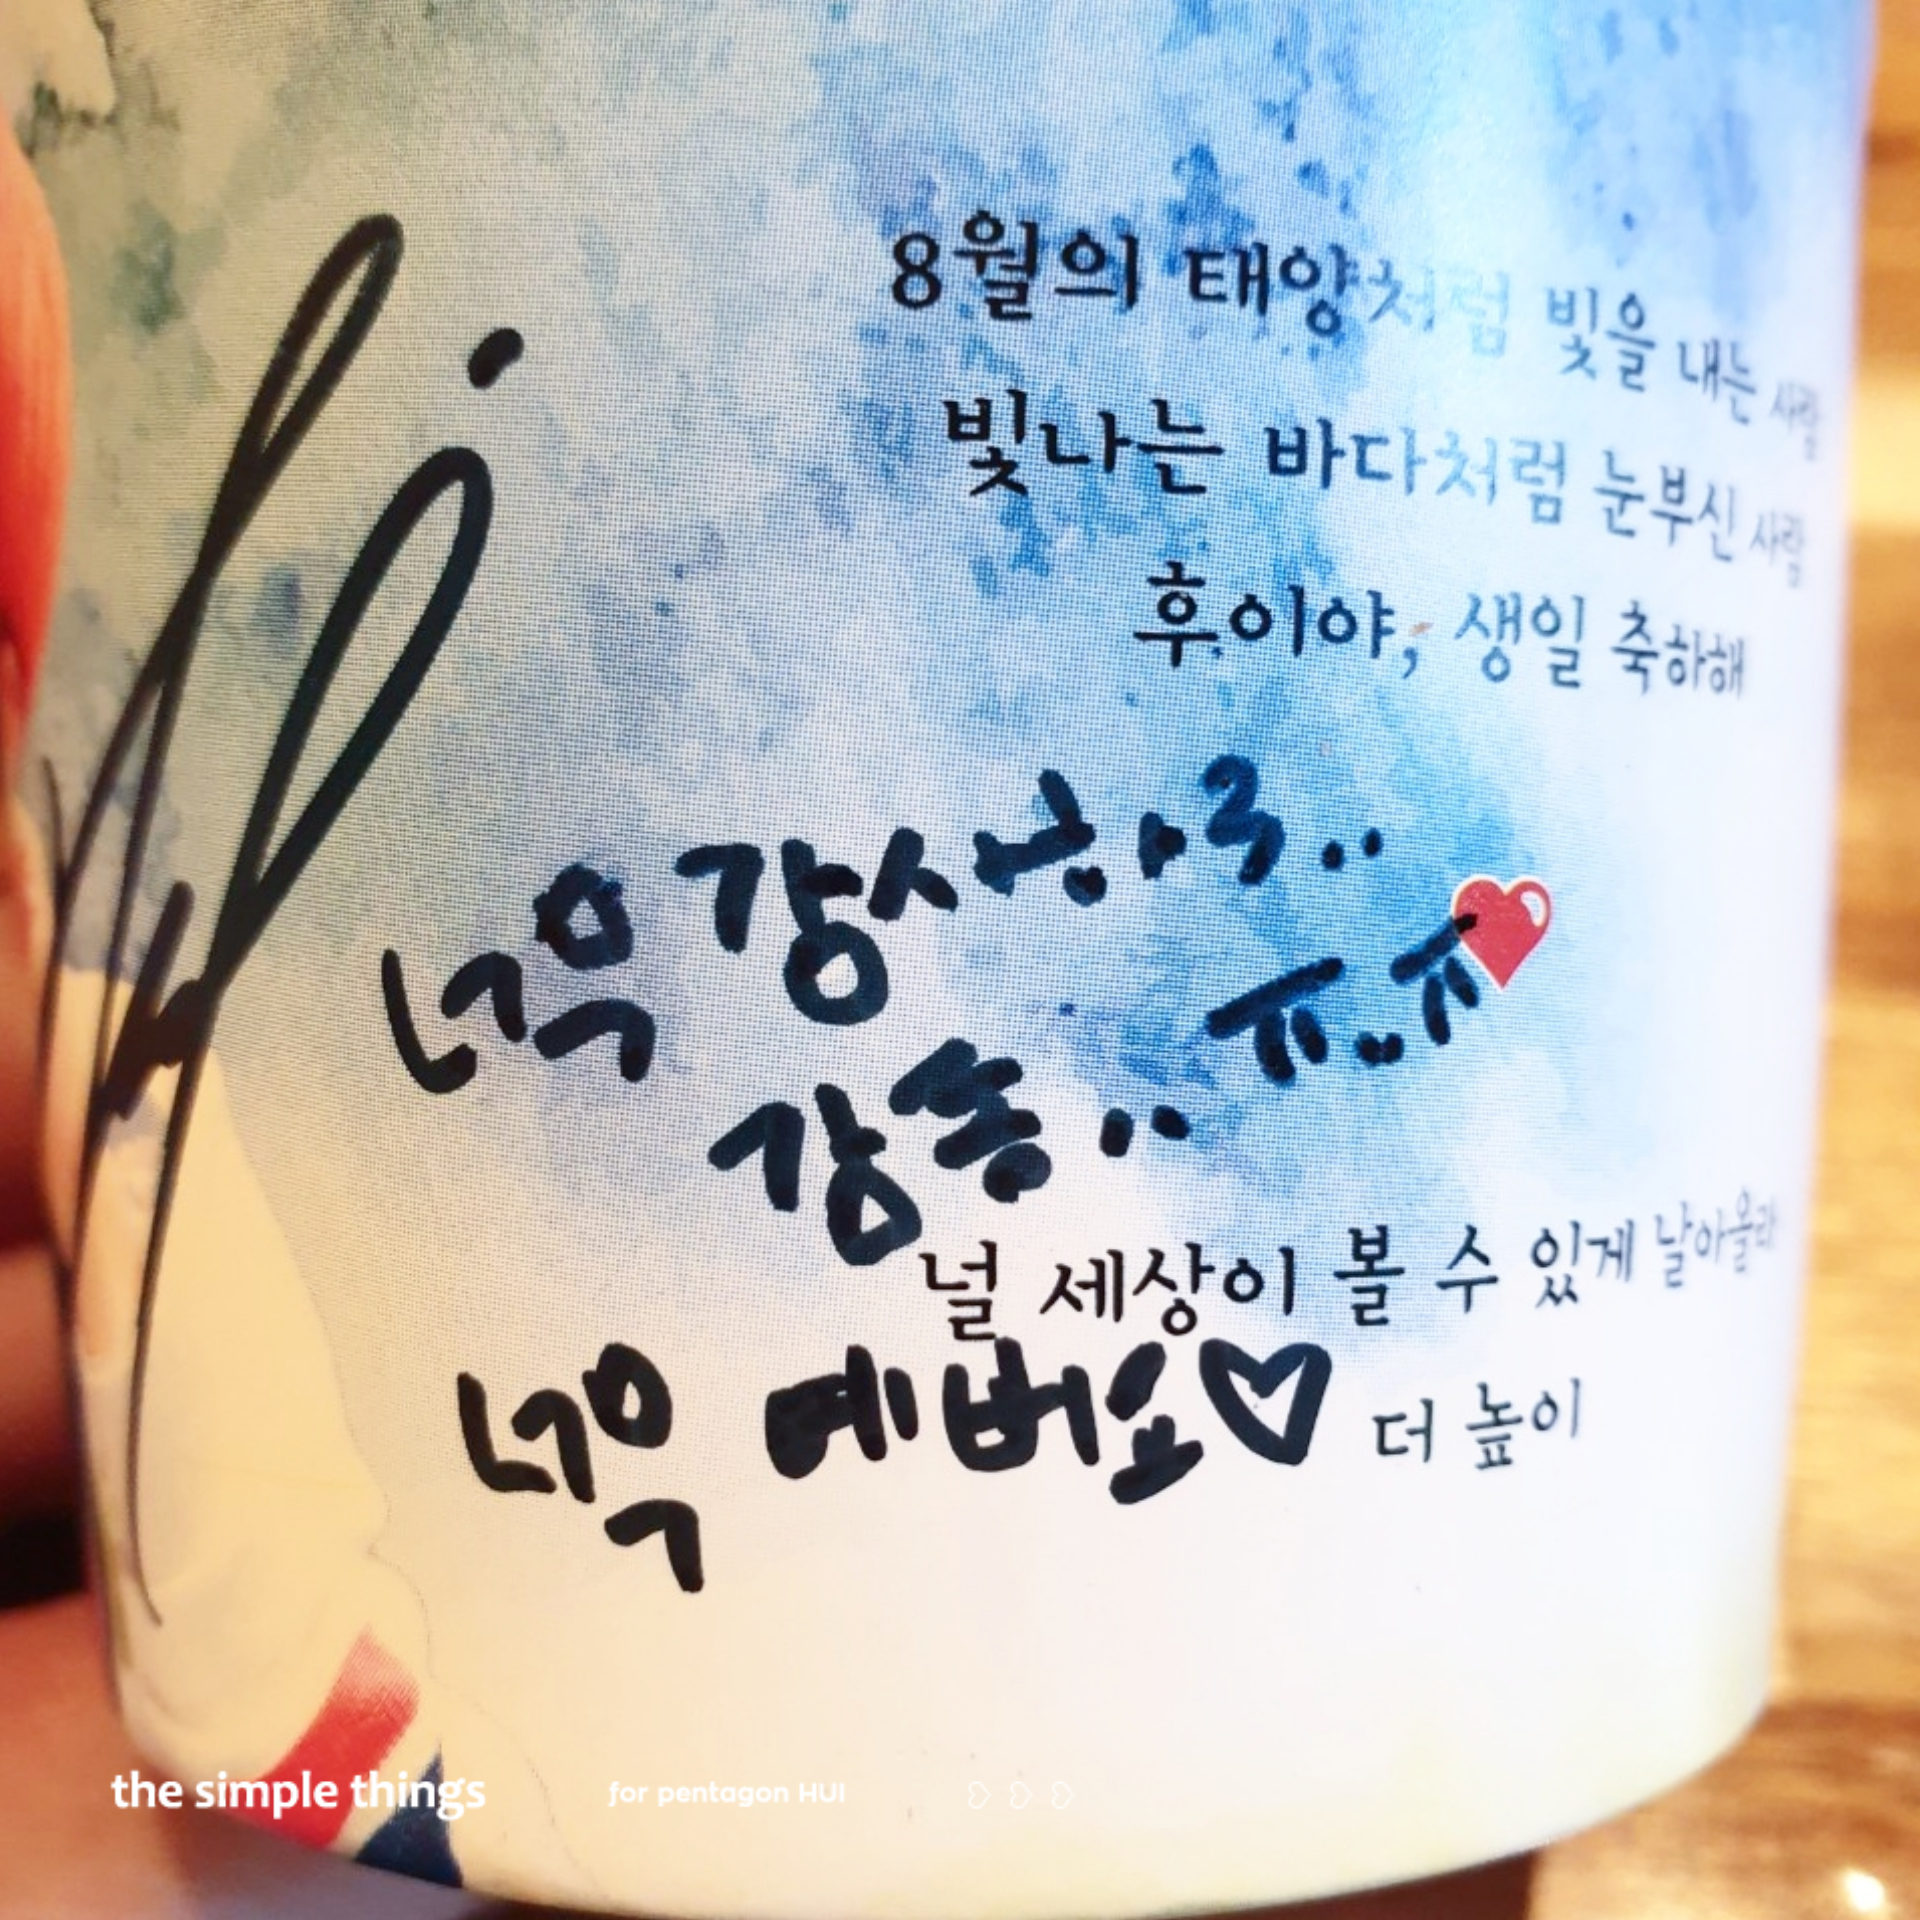 8월의 태양처럼 빛을 내는 사람
빛나는 바다처럼 눈부신 사람
후이야, 생일 축하해
너무 감사하구..
감송.. ㅠ.ㅠ
널 세상이 볼 수 있게 날아올라
너무 예뻐요♡
더 높이
the simple things
for pentagon HUI